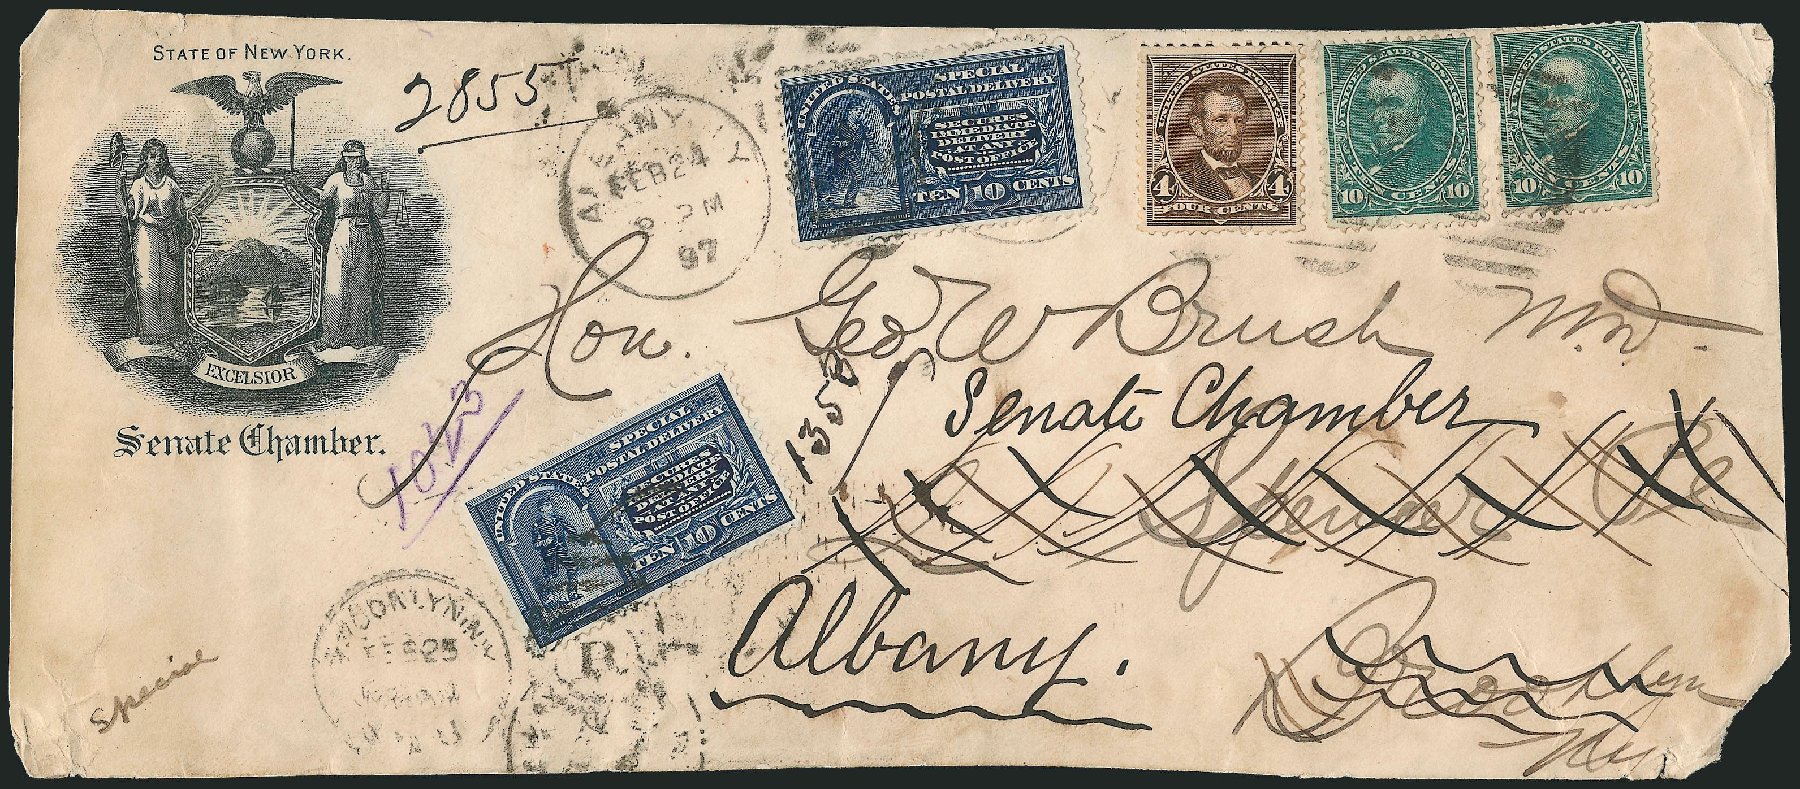 STATE OF NEW YORK.
EXCELSIOR
Senate Chamber.
2855
ALBANY, N.Y.
FEB 24
6 PM
97
UNITED STATES
SPECIAL
POSTAL DELIVERY
SECURES
IMMEDIATE
DELIVERY
AT ANY
POST OFFICE
TEN 10 CENTS
UNITED STATES POSTAGE
4 4
FOUR CENTS
UNITED STATES POSTAGE
10 10
TEN CENTS
UNITED STATES POSTAGE
10 10
TEN CENTS
Hon. Geo W Brush M.D.
Senate Chamber
Spencer Pl
Albany.
Brooklyn
NY
1023
UNITED STATES
SPECIAL
POSTAL DELIVERY
SECURES
IMMEDIATE
DELIVERY
AT ANY
POST OFFICE
TEN 10 CENTS
BROOKLYN, N.Y.
FEB 25
R
N
Special